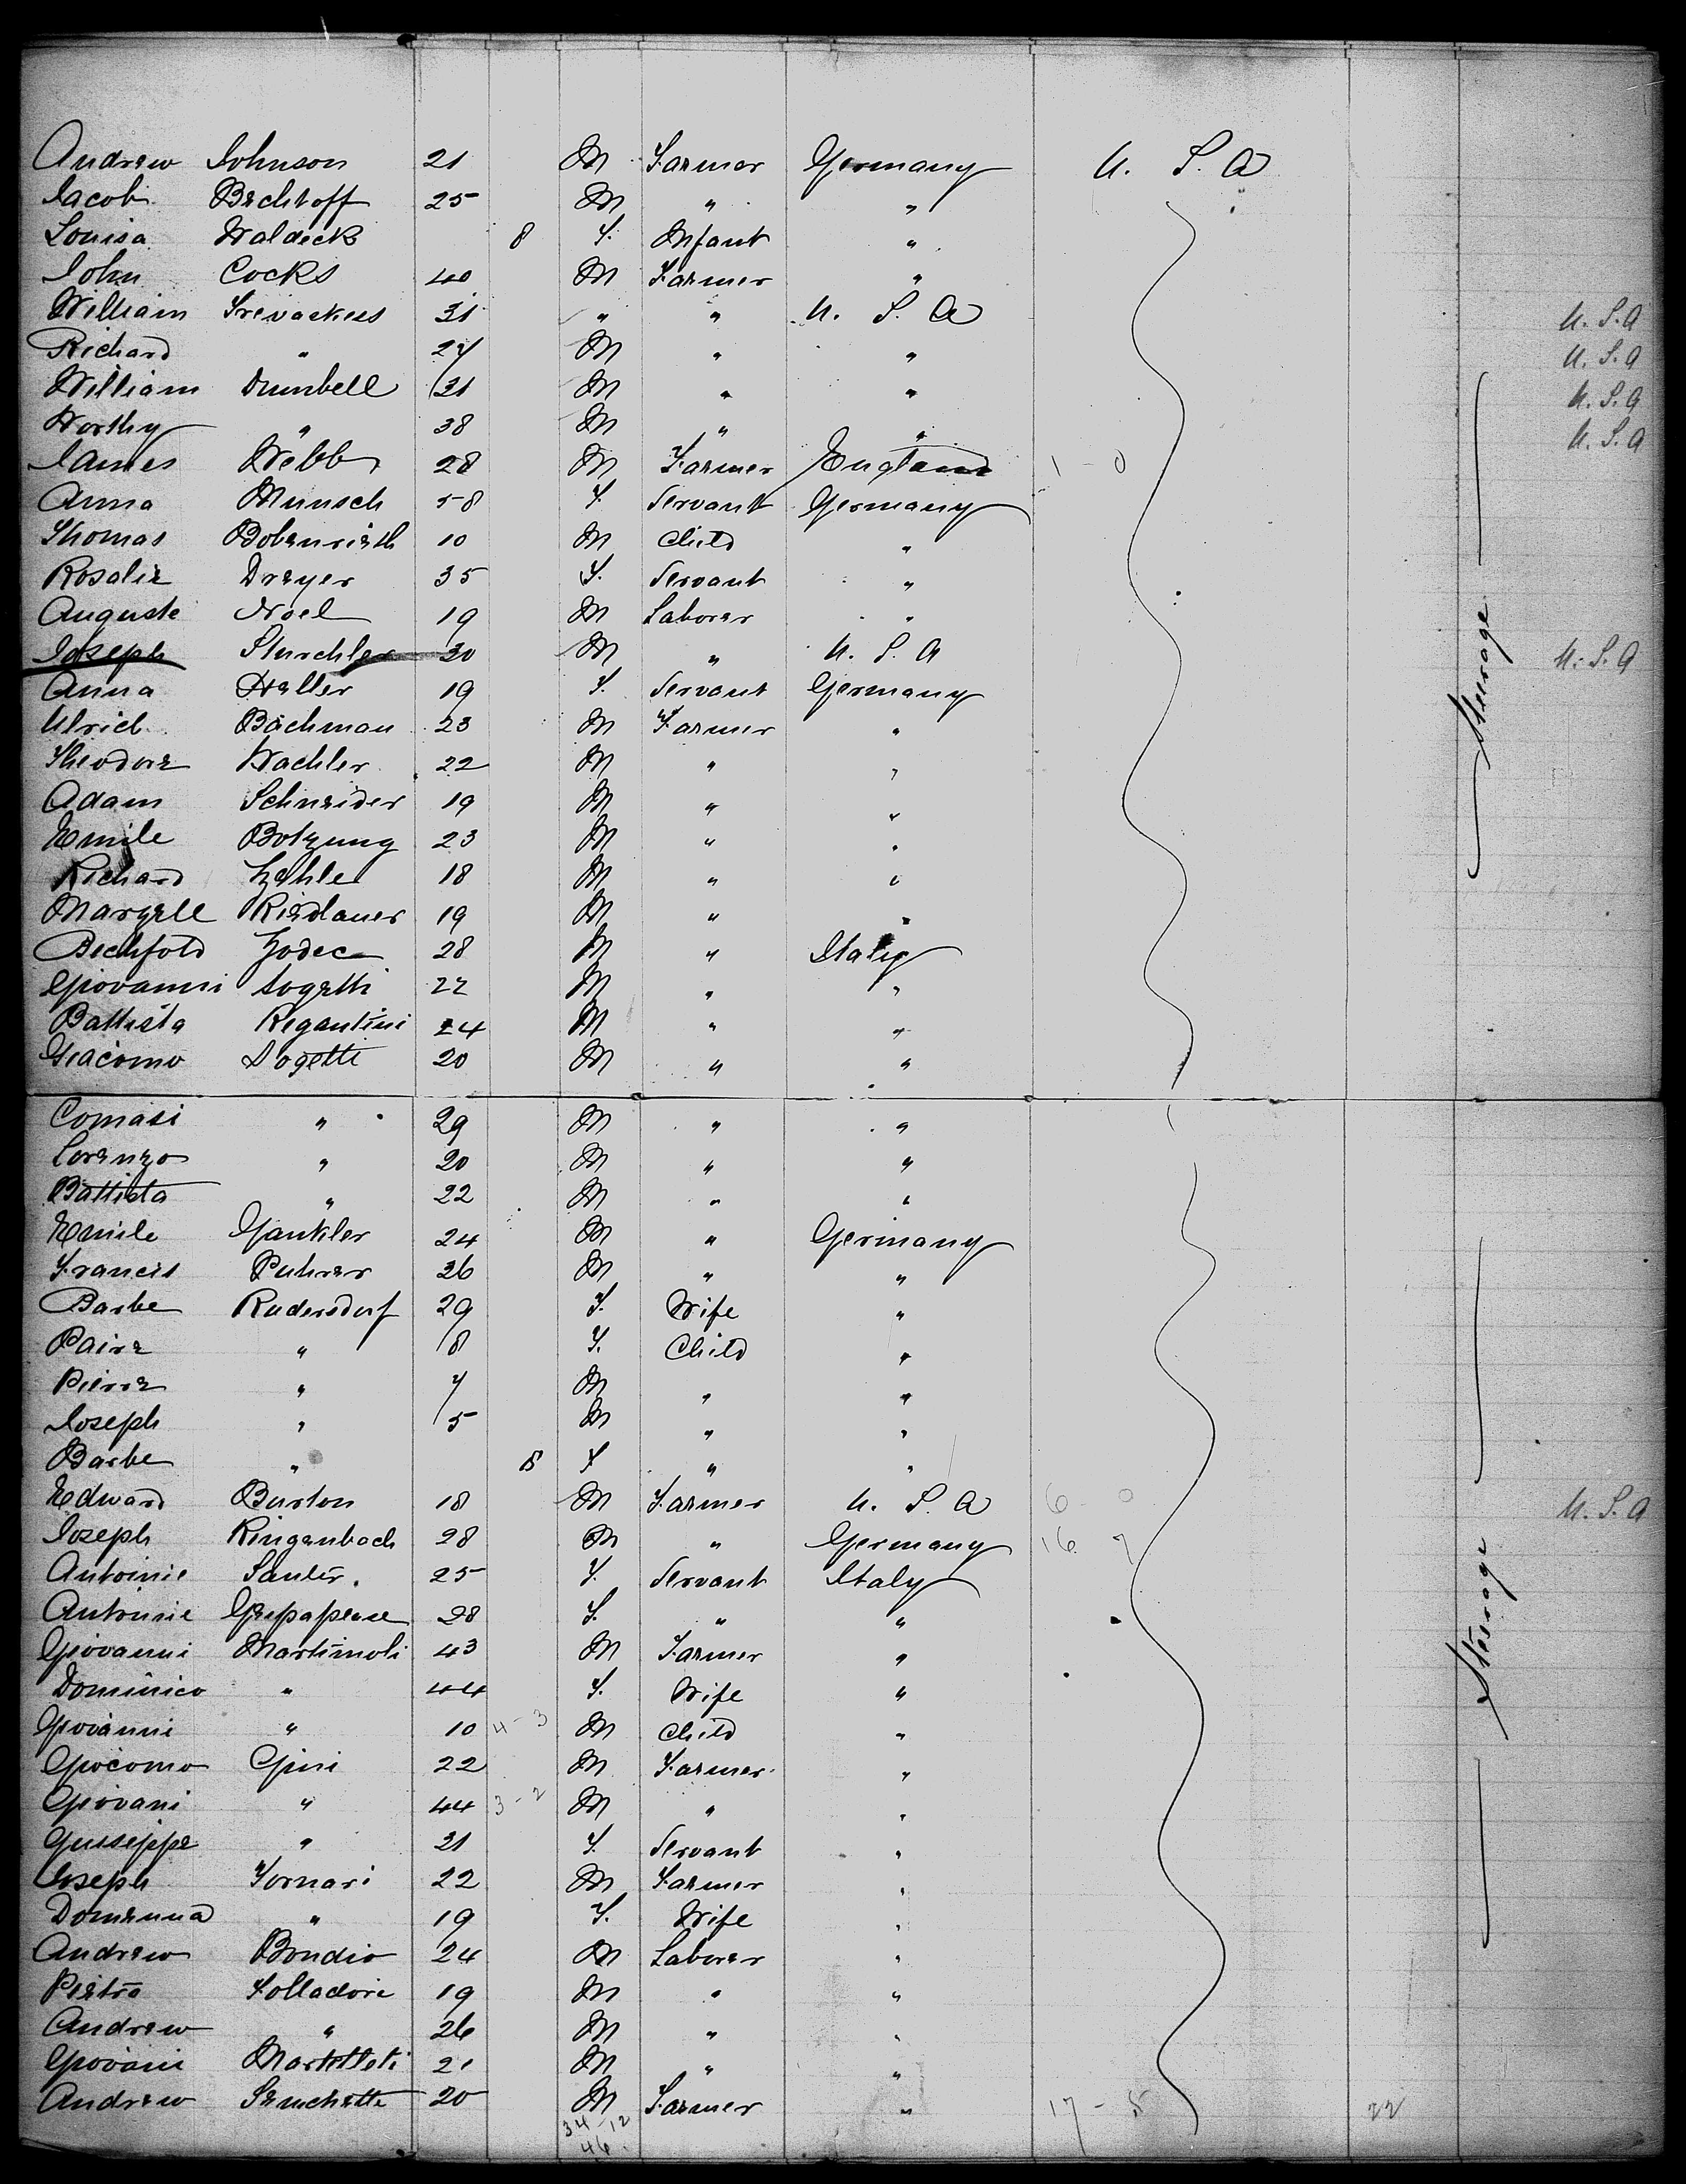 Andrew Johnson 21 M Farmer Germany U. S. A
Jacob Bechtoff 25 M " "
Louisa Waldeck 8 F. Infant "
John Cocks 40 M Farmer "
William 31 " " U. S. A U. S. A
Richard " M " " U. S. A
William Dumbell 31 M " " U. S. A
Worthy " 38 M " " U. S. A
James Webb 28 M Farmer England 1 - 0
Anna Munsch 58 F Servant Germany
Thomas 10 M Child "
Rosalie Dreyer 35 F. Servant "
Auguste Noel 19 M Laborer "
Joseph Sturchler 30 M " U. S. A U. S. A
Anna Heller 19 F. Servant Germany
Ulrich Bachman 23 M Farmer "
Theodore Wachler 22 M " "
Adam Schneider 19 M " "
Emile Botzung 23 M " "
Richard 18 M " "
Riedlauer 19 M " "
Bechfold Zodec 28 M " Italy
Giovanni Sogetti 22 M " "
Battista Regantini 24 M " "
Giacomo Sogetti 20 M " "
Steerage
Comasi " 29 M " "
Lorenzo " 20 M " "
Battista " 22 M " "
Emile Gankler 24 M " Germany
Francis Puhrer 36 M " "
Barbe Rudersdorf 29 F. Wife "
" 8 F. Child "
Pierre " 7 M " "
Joseph " 5 M " "
Barbe " 8 F " "
Edward Burton 18 M Farmer U. S. A 6 - 0 U. S. A
Joseph Ringenbach 28 M " Germany 16 7
Antoinie Sauter. 25 F. Servant Italy
Antoinie 28 F. " "
Giovanni Martimoli 43 M Farmer "
Dominico " 44 F. Wife "
Giovanni " 10 4 - 3 M Child "
Giocomo Gini 22 M Farmer "
Giovani " 44 3 - 2 M " "
Guiseppe " 21 F. Servant "
Joseph Fornari 22 M Farmer "
Domenna " 19 F. Wife "
Andrew Bondio 24 M Laborer "
Pietro Folladore 19 M " "
Andrew " 26 M " "
Giovani 21 M " "
Andrew 20 M Farmer " 17 - 5 22
Steerage
34 - 12
46